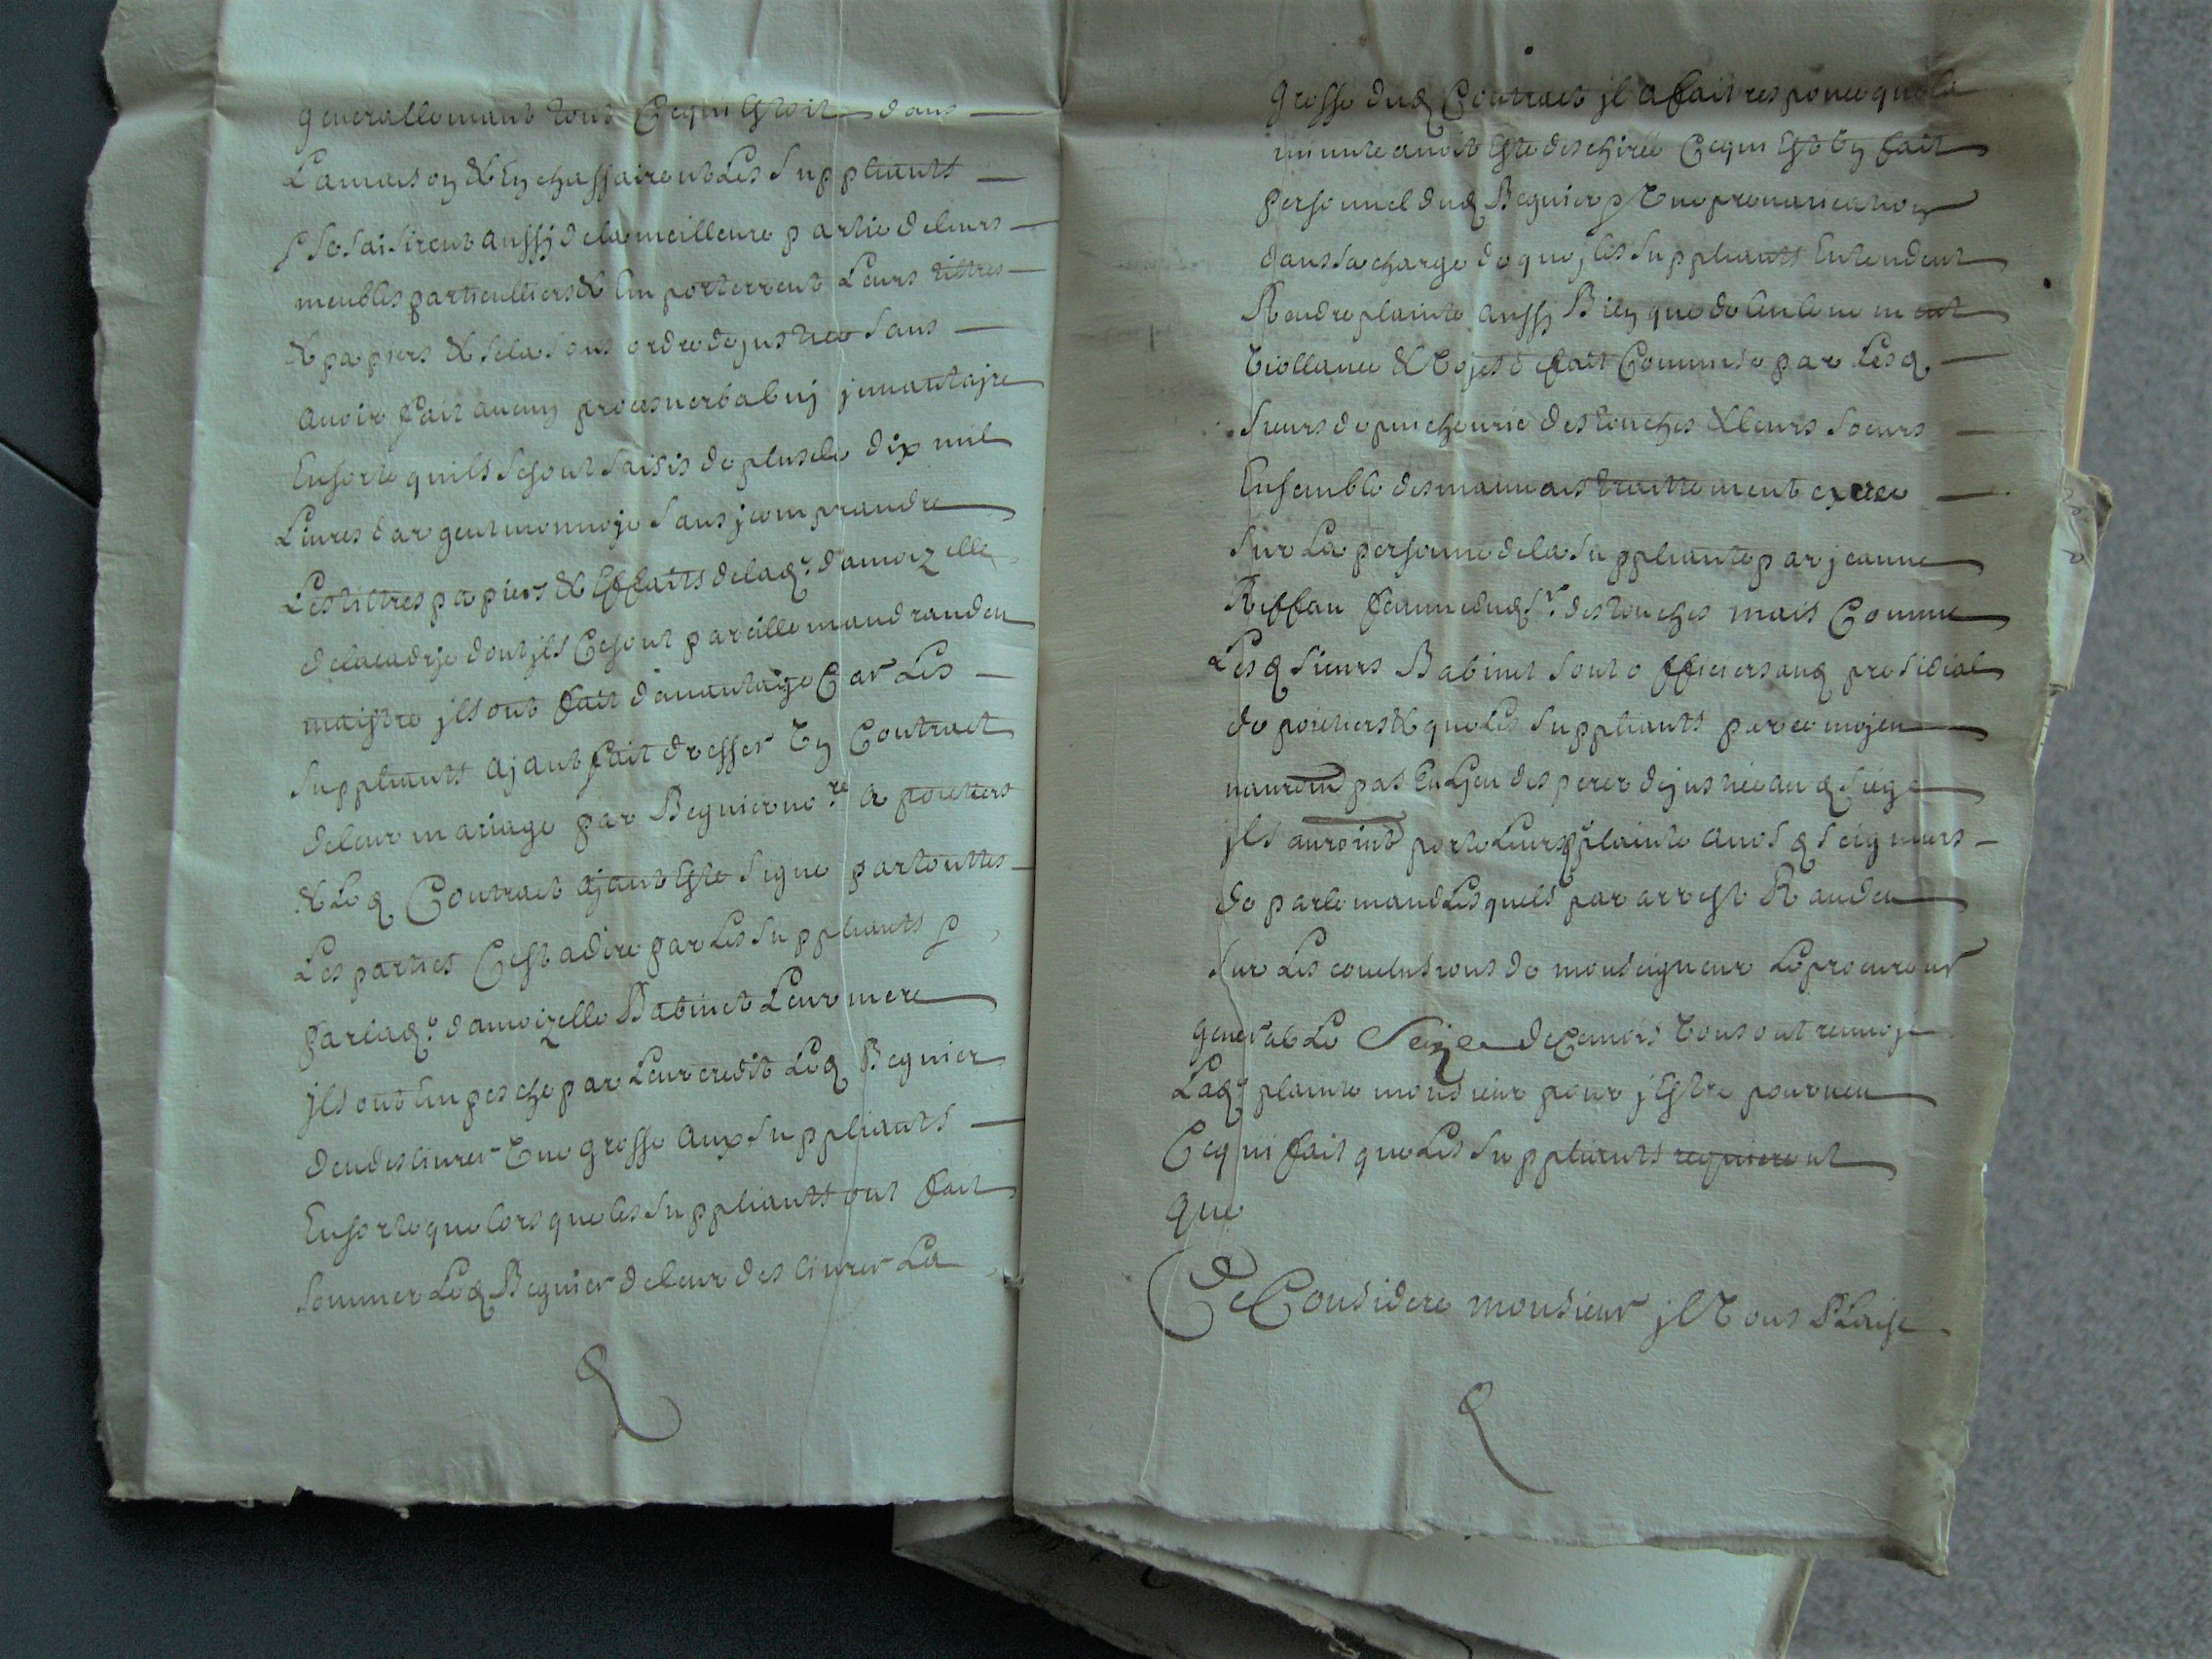 generallemant tout Cequi Estoit dans
Lamaison & En chassairent Les Suppliants
Se Saisirent aussj dela meilleure partie deleurs
meubles particulliers & Emporterrent Leurs tiltres
& papiers & Sela Sous ordre dejustice Sans
avoir fait aucung procesverbal nj jnvantajre
Ensorte quils Sesont Saisis de plus de dix mil
Livres dargent monnoje Sans j comprandre
Les tiltres papiers & Effaits delaq. damoizelle
delacadrje dont jls Cesont pareillemand randeu
maistre jls ont fait davantage Car Les
Suppliants ajant fait dresser Vng Contract
deleur mariage par Begnier no.re a poictiers
& Leq Contract ajant Este Signe partouttes
Les parties Cest adire par Les Suppliants
parlaq. damoizelle Babinet Leur mere
jls ont Enpesche par Leur credit Leq Begnier
dendeslivrer Vne grosse aux Suppliants
Ensorte que lors que les Suppliants ont fait
Sommer Leq Begnier deleur deslivrer La
grosse dudq Contract jl a fait responce que la
minute avoit Este deschiree Cequi Est Vng fait
personnel dudq Begnier Vne prevarication
dans sa charge de quoj les Suppliants Entendent
Rendre plainte aussj Bieng que de lenlevement
Viollance & Vojes de fait Commise par Lesq
Sieurs de puicheurie des touches & leurs Soeurs
Ensemble des mauvais traittement exerce
Sur La personne dela Suppliante par jeanne
Riffau femme dudq Sr. des touches mais Comme
Lesq Sieurs Babinet Sont officiers audq presidial
de poictiers & que Les Suppliants par ce mojen
nauroint pas Eu Ljeu desperer dejustice audq Siege
jls auroint porte Leurs plainte a nosdq Seigneurs
de parlemand Lesquels par arrest Randeu
Sur Les conclusions de monseigneur Le procureur
general Le Seize de ce mois Vous ont renvoje
Laq. plainte monsieur pour j Estre pourveu
Cequi fait que Les Suppliants requierent
que
Ce Considere monsieur jl Vous Plaise